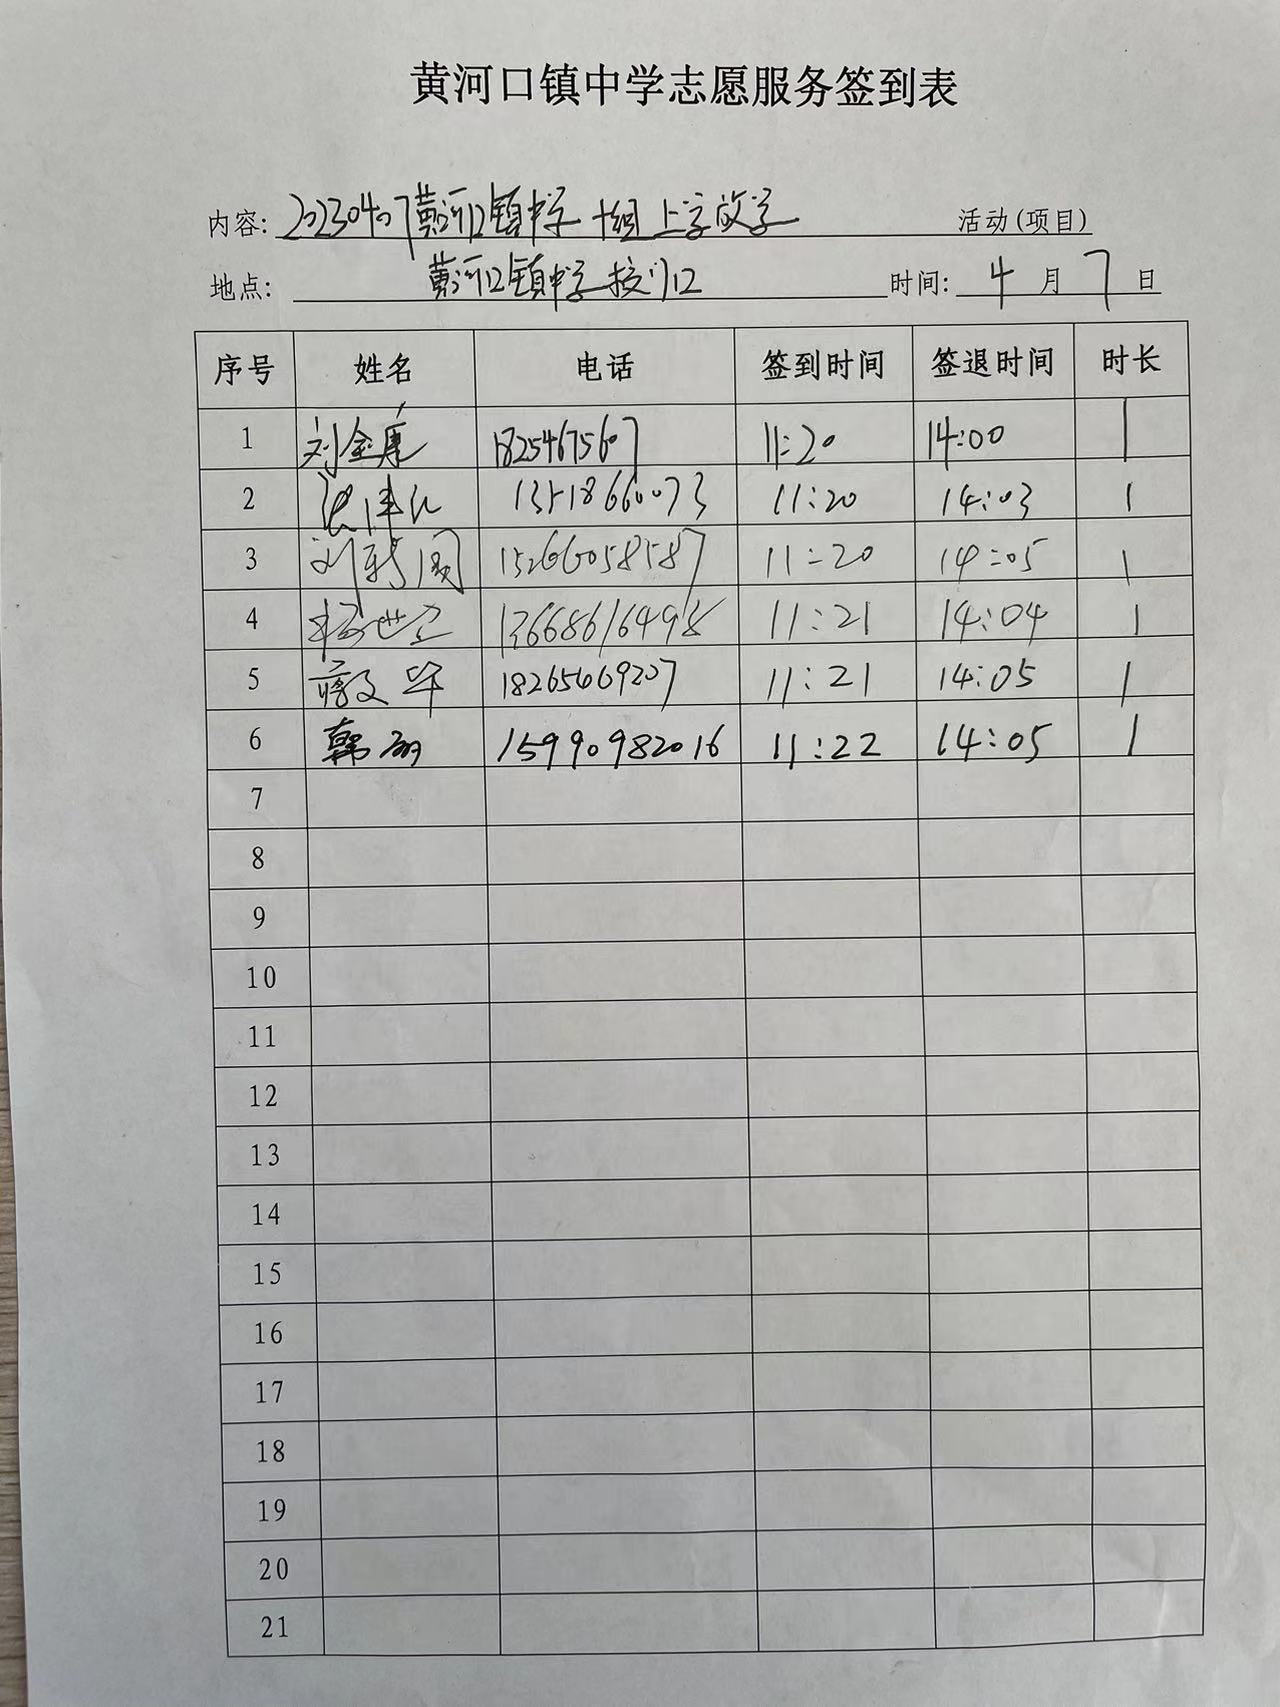 黄河口镇中学志愿服务签到表
内容: 20230407黄河口镇中学十组上学放学 活动(项目)
地点: 黄河口镇中学校门口 时间: 4 月 7 日
序号 姓名 电话 签到时间 签退时间 时长
1 刘金庭 18254675607 11:20 14:00 1
2 13518660073 11:20 14:03 1
3 刘 国 15266058587 11:20 14:05 1
4 杨世卫 13668616498 11:21 14:04 1
5 蒋文华 18265669207 11:21 14:05 1
6 韩丽 15990982016 11:22 14:05 1
7
8
9
10
11
12
13
14
15
16
17
18
19
20
21